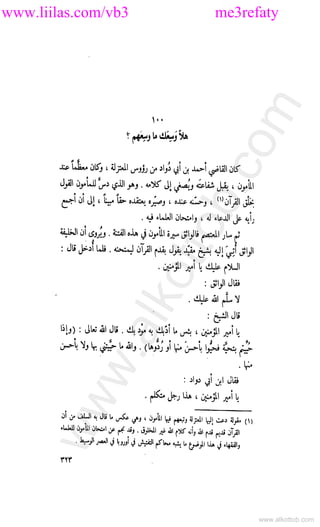 www.liilas.com/vb3 me3refaty
١٠٠
فهلاّ وَسِعَكَ ما وَسِعَهم ؟
كان القاضي أحمد بن أبي دُواد من رؤوس المعتزلة ، وكان مُعَظَّماً عند
المأمون ، يقبل شفاعته ويُصغي إلى كلامه . وهو الذي دسَّ للمأمون القول
بخَلْق القرآن (١) ، وحسّنه عنده ، وصيّره يعتقده حقّاً مبيناً ، إلى أن أجمع
رأيه على الدعاء له ، وامتحان العلماء فيه .
ثم سار المعتصم فالواثق سيرة المأمون في هذه الفتنة . ويُروى أن الخليفة
الواثق أُتِيَ إليه بشيخ مقيَّد يقول بقدم القرآن ليمتحنه . فلما أُدخِل قال :
السلام عليك يا أمير المؤمنين .
فقال الواثق :
لا سلَّم الله عليك .
قال الشيخ :
يا أمير المؤمنين ، بئس ما أدَّبك به مؤدِّبك . قال الله تعالى : (وإذا
حُيِّيتُم بتحيَّة فحيّوا بأحسن منها أو رُدُّوها) . والله ما حيَّيتني بها ولا بأحسن
منها .
فقال ابن أبي دواد :
يا أمير المؤمنين ، هذا رجل متكلم .
(١) مقولة دعت إليها المعتزلة وتبعهم فيها المأمون ، وهي عكس ما قال به السلف من أن
القرآن قديم قدم الله وأنه كلام الله غير المخلوق . وقد نجم عن امتحان المأمون للعلماء
والفقهاء في هذا الموضوع ما يشبه محاكم التفتيش في أوروبا في العصر الوسيط .
٣٢٣
www.alkottob.com
www.alkottob.com